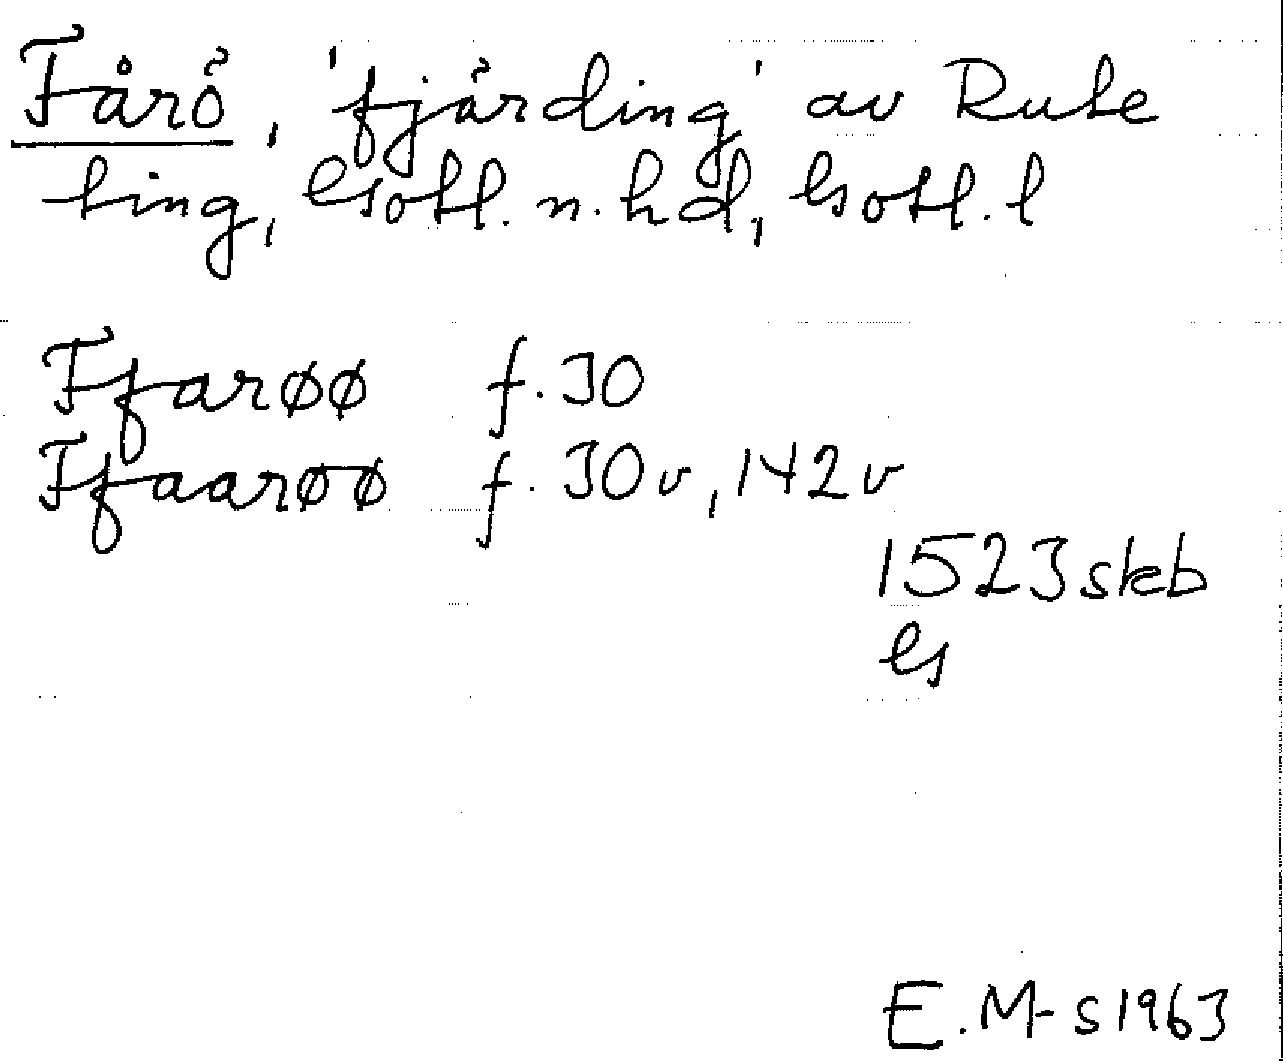 Fårö, 'fjärding' av Rute
ting, Gotl. n. hd, Gotl. l
Ffarøø f. 30
Ffaarøø f. 30v, 142v
1523 skb
G
E. M-s 1963